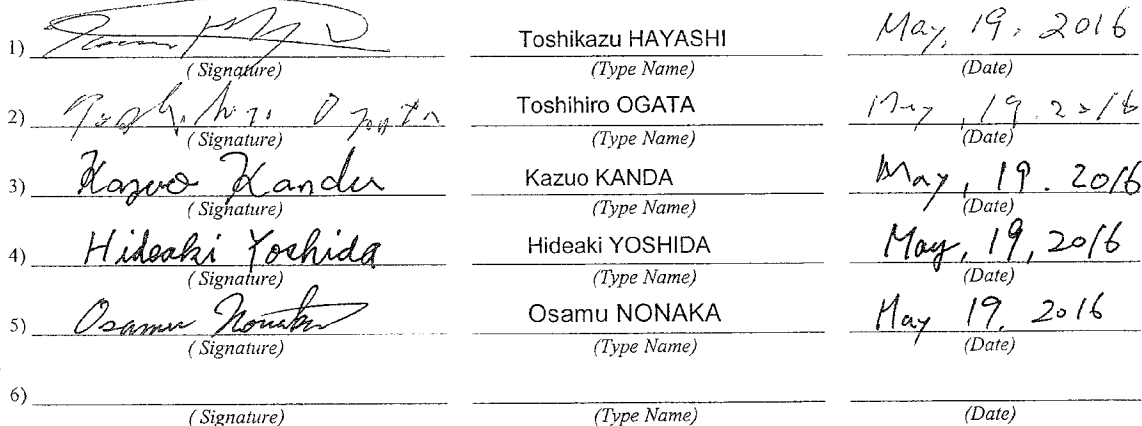 1) Toshikazu HAYASHI May, 19, 2016
(Signature) (Type Name) (Date)
2) Toshihiro Ogata Toshihiro OGATA May, 19. 2016
(Signature) (Type Name) (Date)
3) Kazuo Kanda Kazuo KANDA May, 19. 2016
(Signature) (Type Name) (Date)
4) Hideaki Yoshida Hideaki YOSHIDA May, 19, 2016
(Signature) (Type Name) (Date)
5) Osamu Nonaka Osamu NONAKA May 19. 2016
(Signature) (Type Name) (Date)
6)
(Signature) (Type Name) (Date)